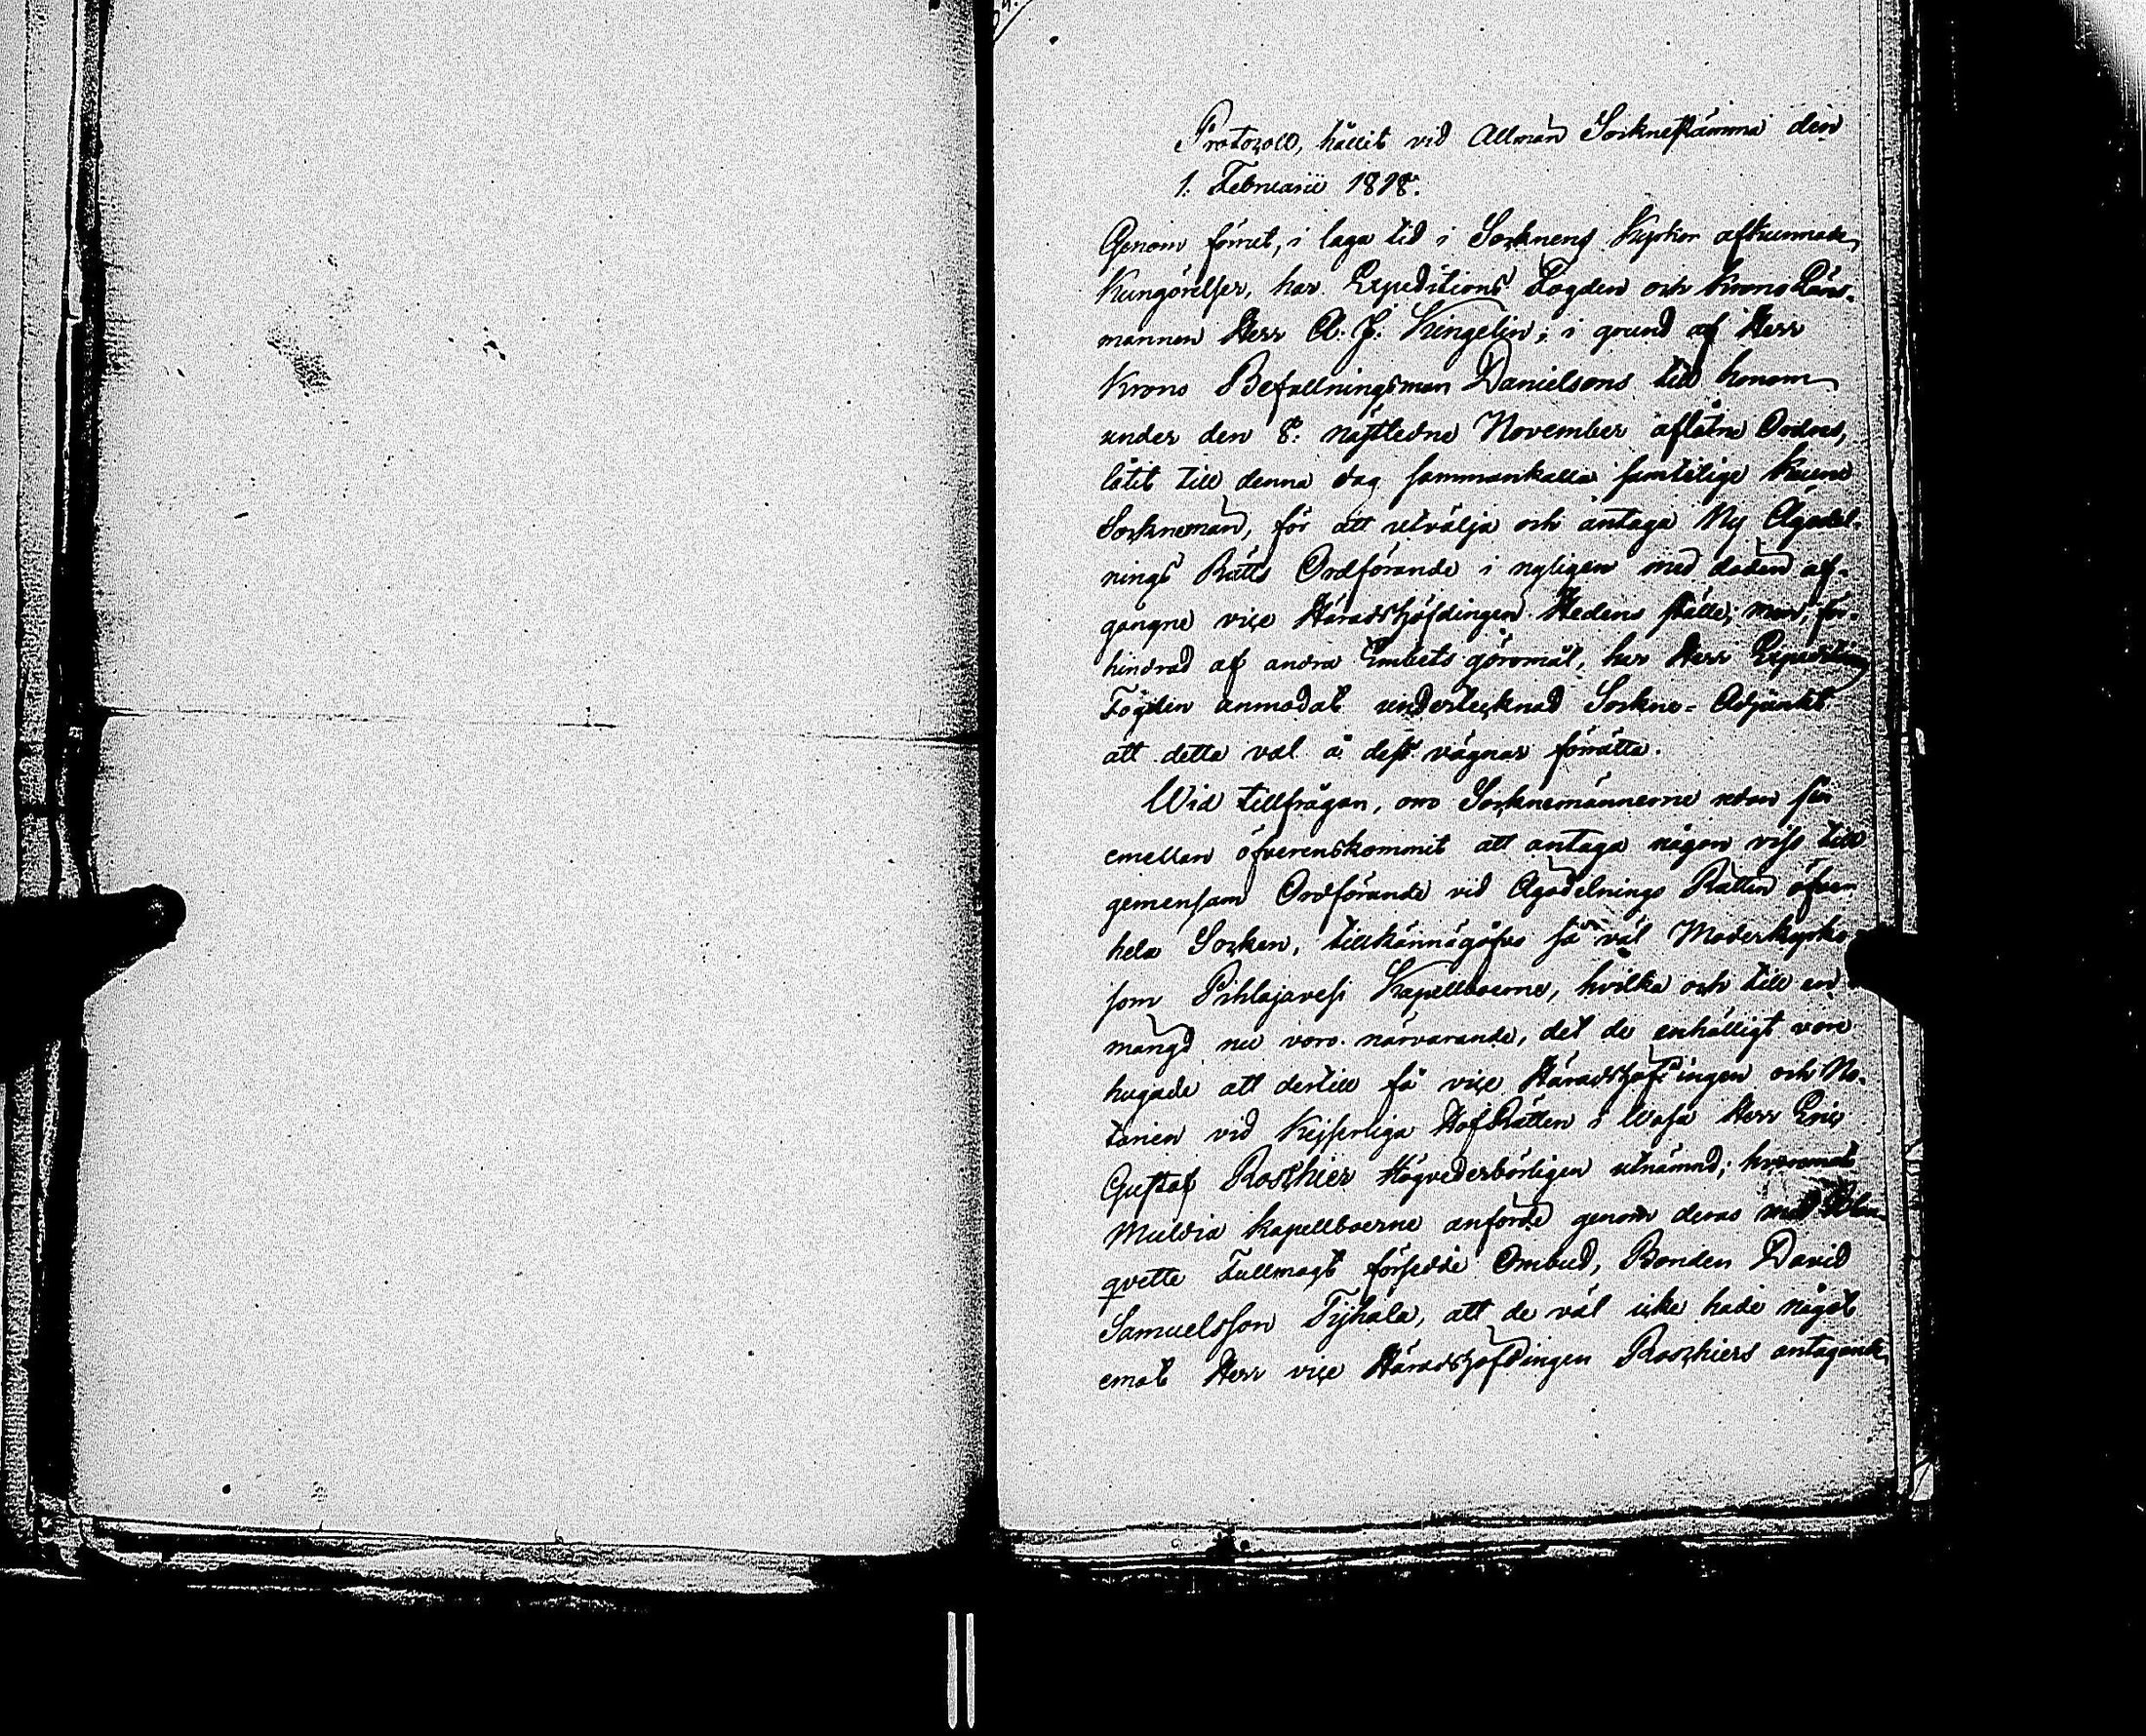 Protocoll, hållit vid Allmän Socknestämma den
1. Februarii 1828.
Genom förut, i laga tid i Socknens Kyrkor afkunnade
Kungörelser, har Expeditions Fogden och Krono Läns-
mannen Herr A. J. Kingelin, i grund af Herr
Krono Befallningsman Danielsons till honom
under den 8. nästledne November aflåtne Ordres,
låtit till denna dag sammankalla samtelige
Sockneman, för att utvälja och antaga Ny Ägodel-
nings Rätts Ordförande i nyligen med döden af-
gångne viçe Häradshöfdingen Hedens ställe; men, för-
hindrad af andra Embets göromål, har Herr Expeditions
Fogden anmodat undertecknad Sockne-Adjunkt
att detta val å dess vägnar förrätta.
Wid tillfrågan, om Socknemännerne redan sin
emellan öfverenskommit att antaga någon viss till
gemensam Ordförande vid Ägodelnings Rätten öfver
hela Socken, tillkännagåfvo så väl Moderkyrko
som Pihlajavesi Kapellboerne, hvilka och till en
mängd nu voro närvarande, det de enhälligt vore
hugade att dertill få viçe Häradshöfdingen och No-
tarien vid Kejserliga HofRätten i Wasa Herr Eriç
Gustaf Roschier Högvederbörligen utnämnd; hvaremot
Muldia kapellboerne anförde genom deras med Blan-
qvette Fullmagt försedde Ombud, Bonden David
Samuelsson Tyhala, att de väl icke hade något
emot Herr viçe Häradshöfdingen Roschiers antagande